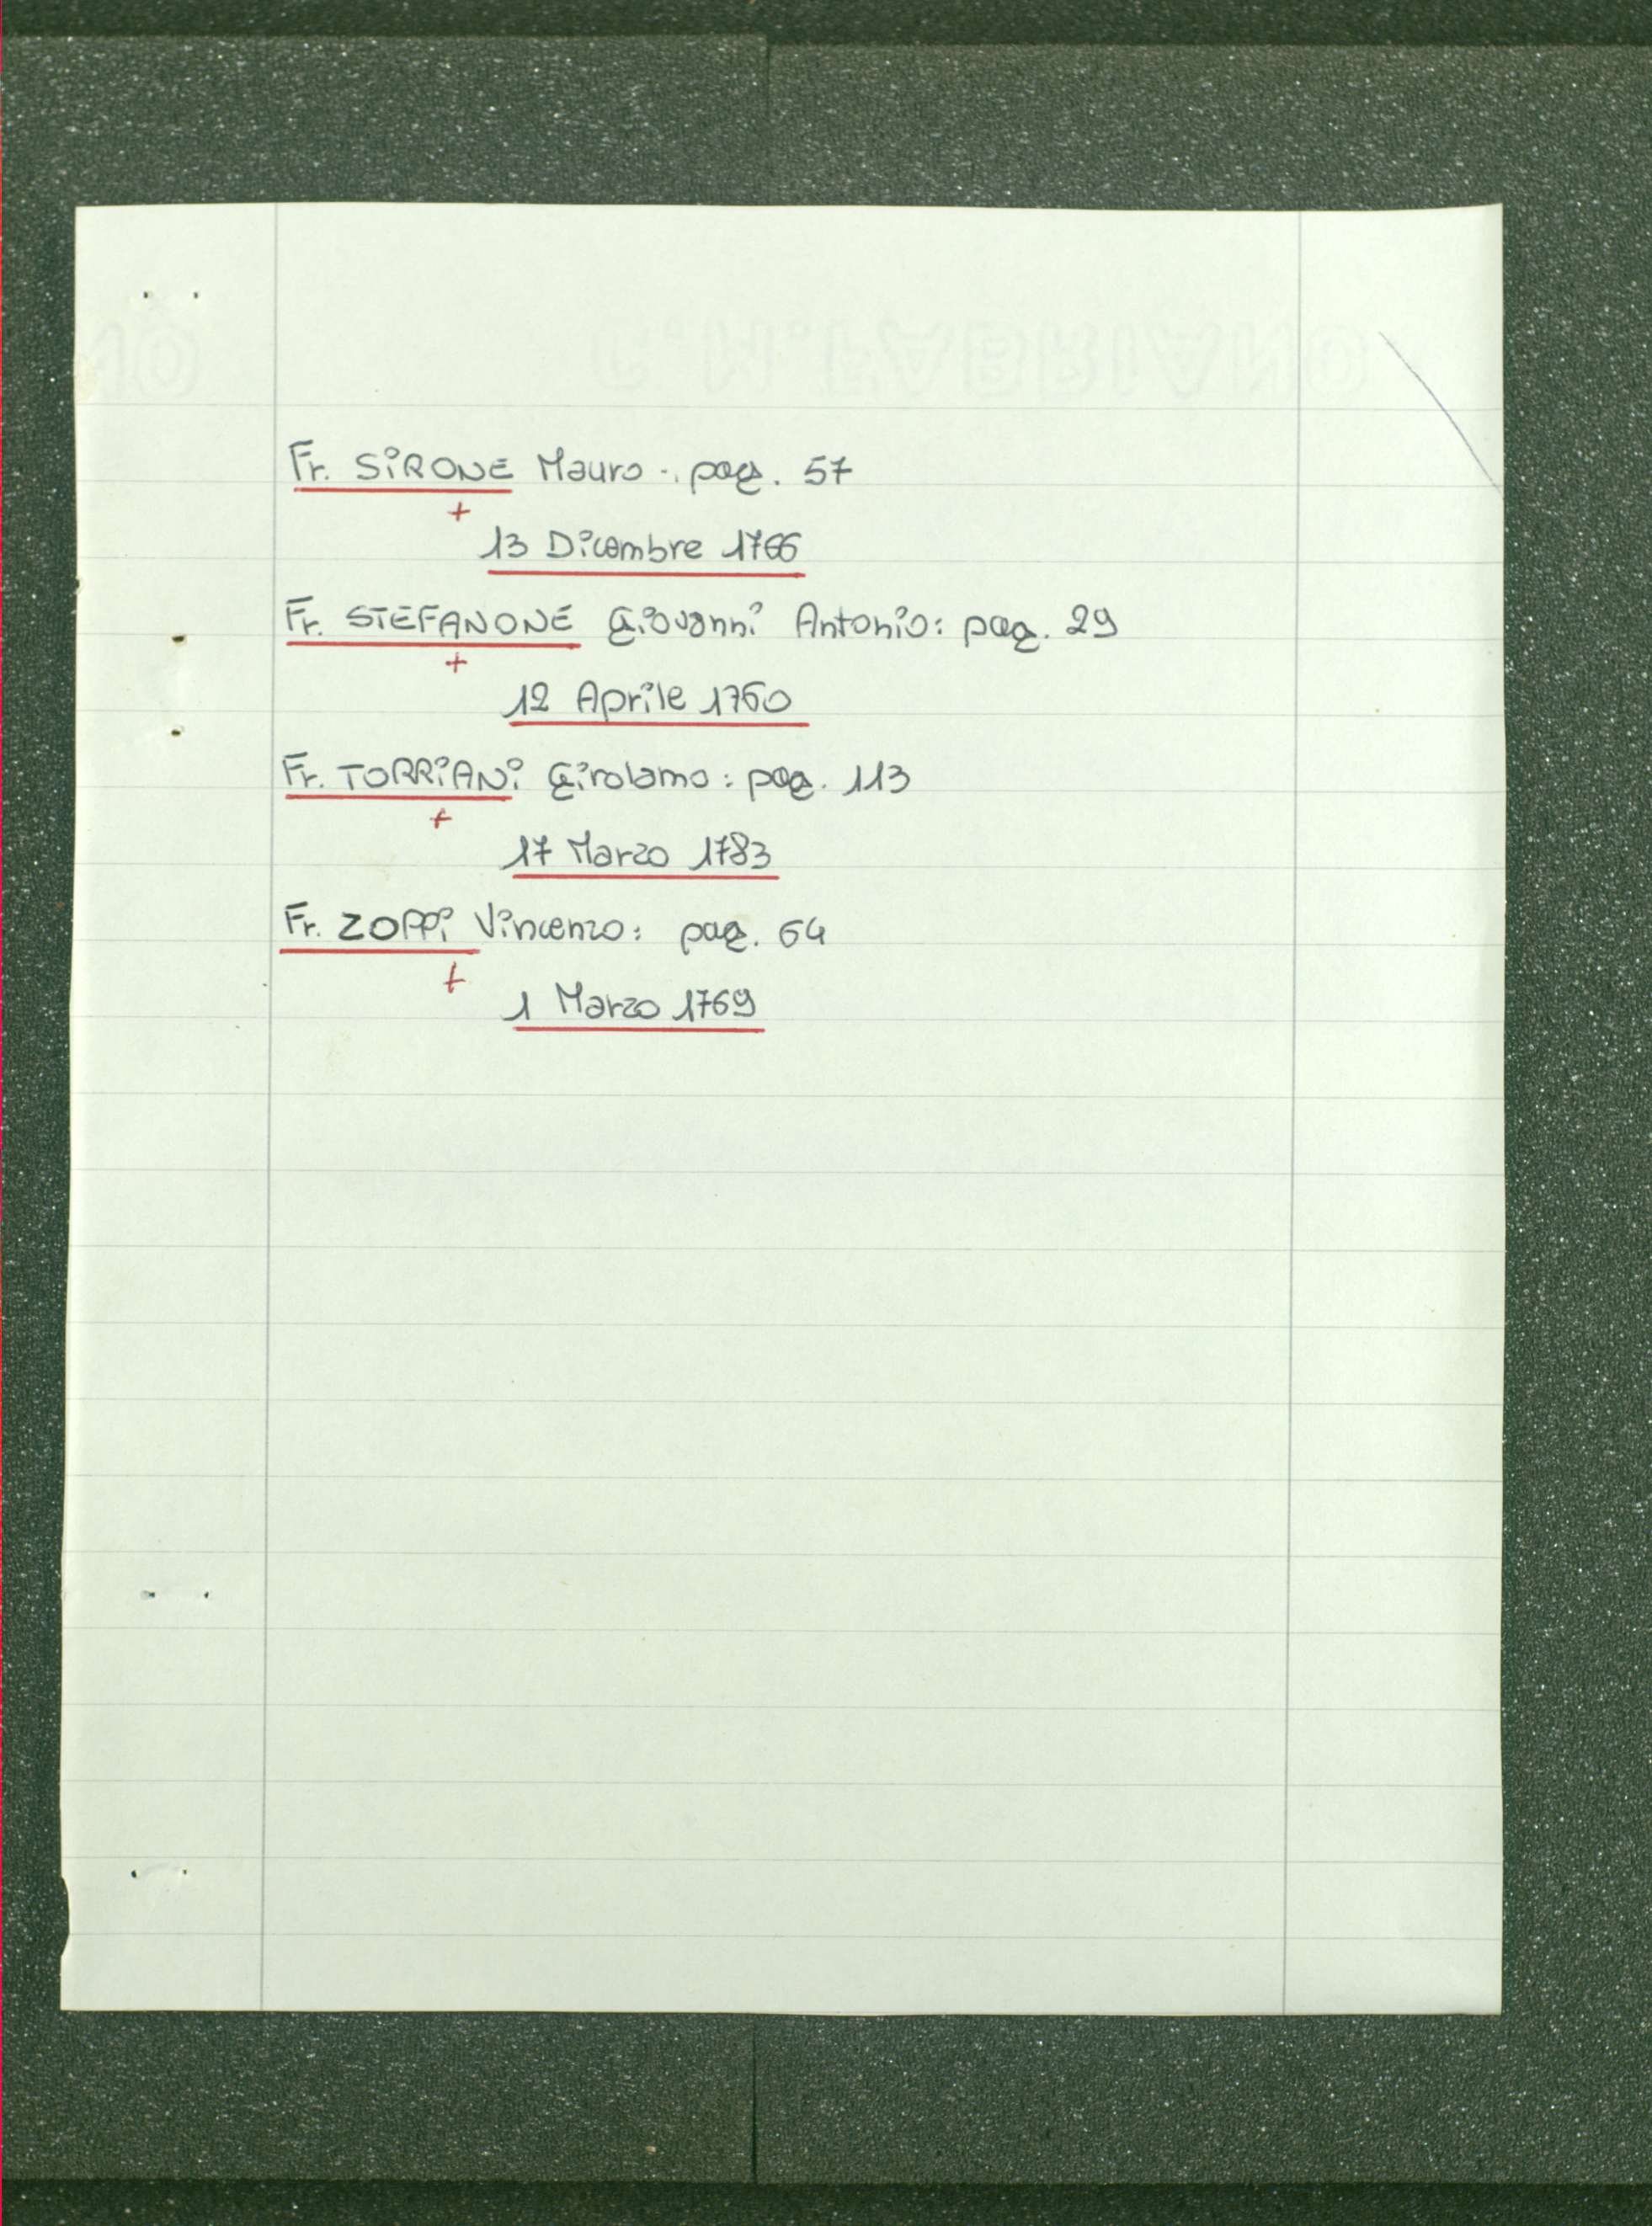 C.M.FABRIANO
Fr. SIRONE Mauro: pag. 57
+
13 Dicembre 1766
Fr. STEFANONE Giovanni Antonio: pag. 29
+
12 Aprile 1760
Fr. TORRIANI Girolamo: pag. 113
+
17 Marzo 1783
Fr. ZOPPI Vincenzo: pag. 64
+
1 Marzo 1769